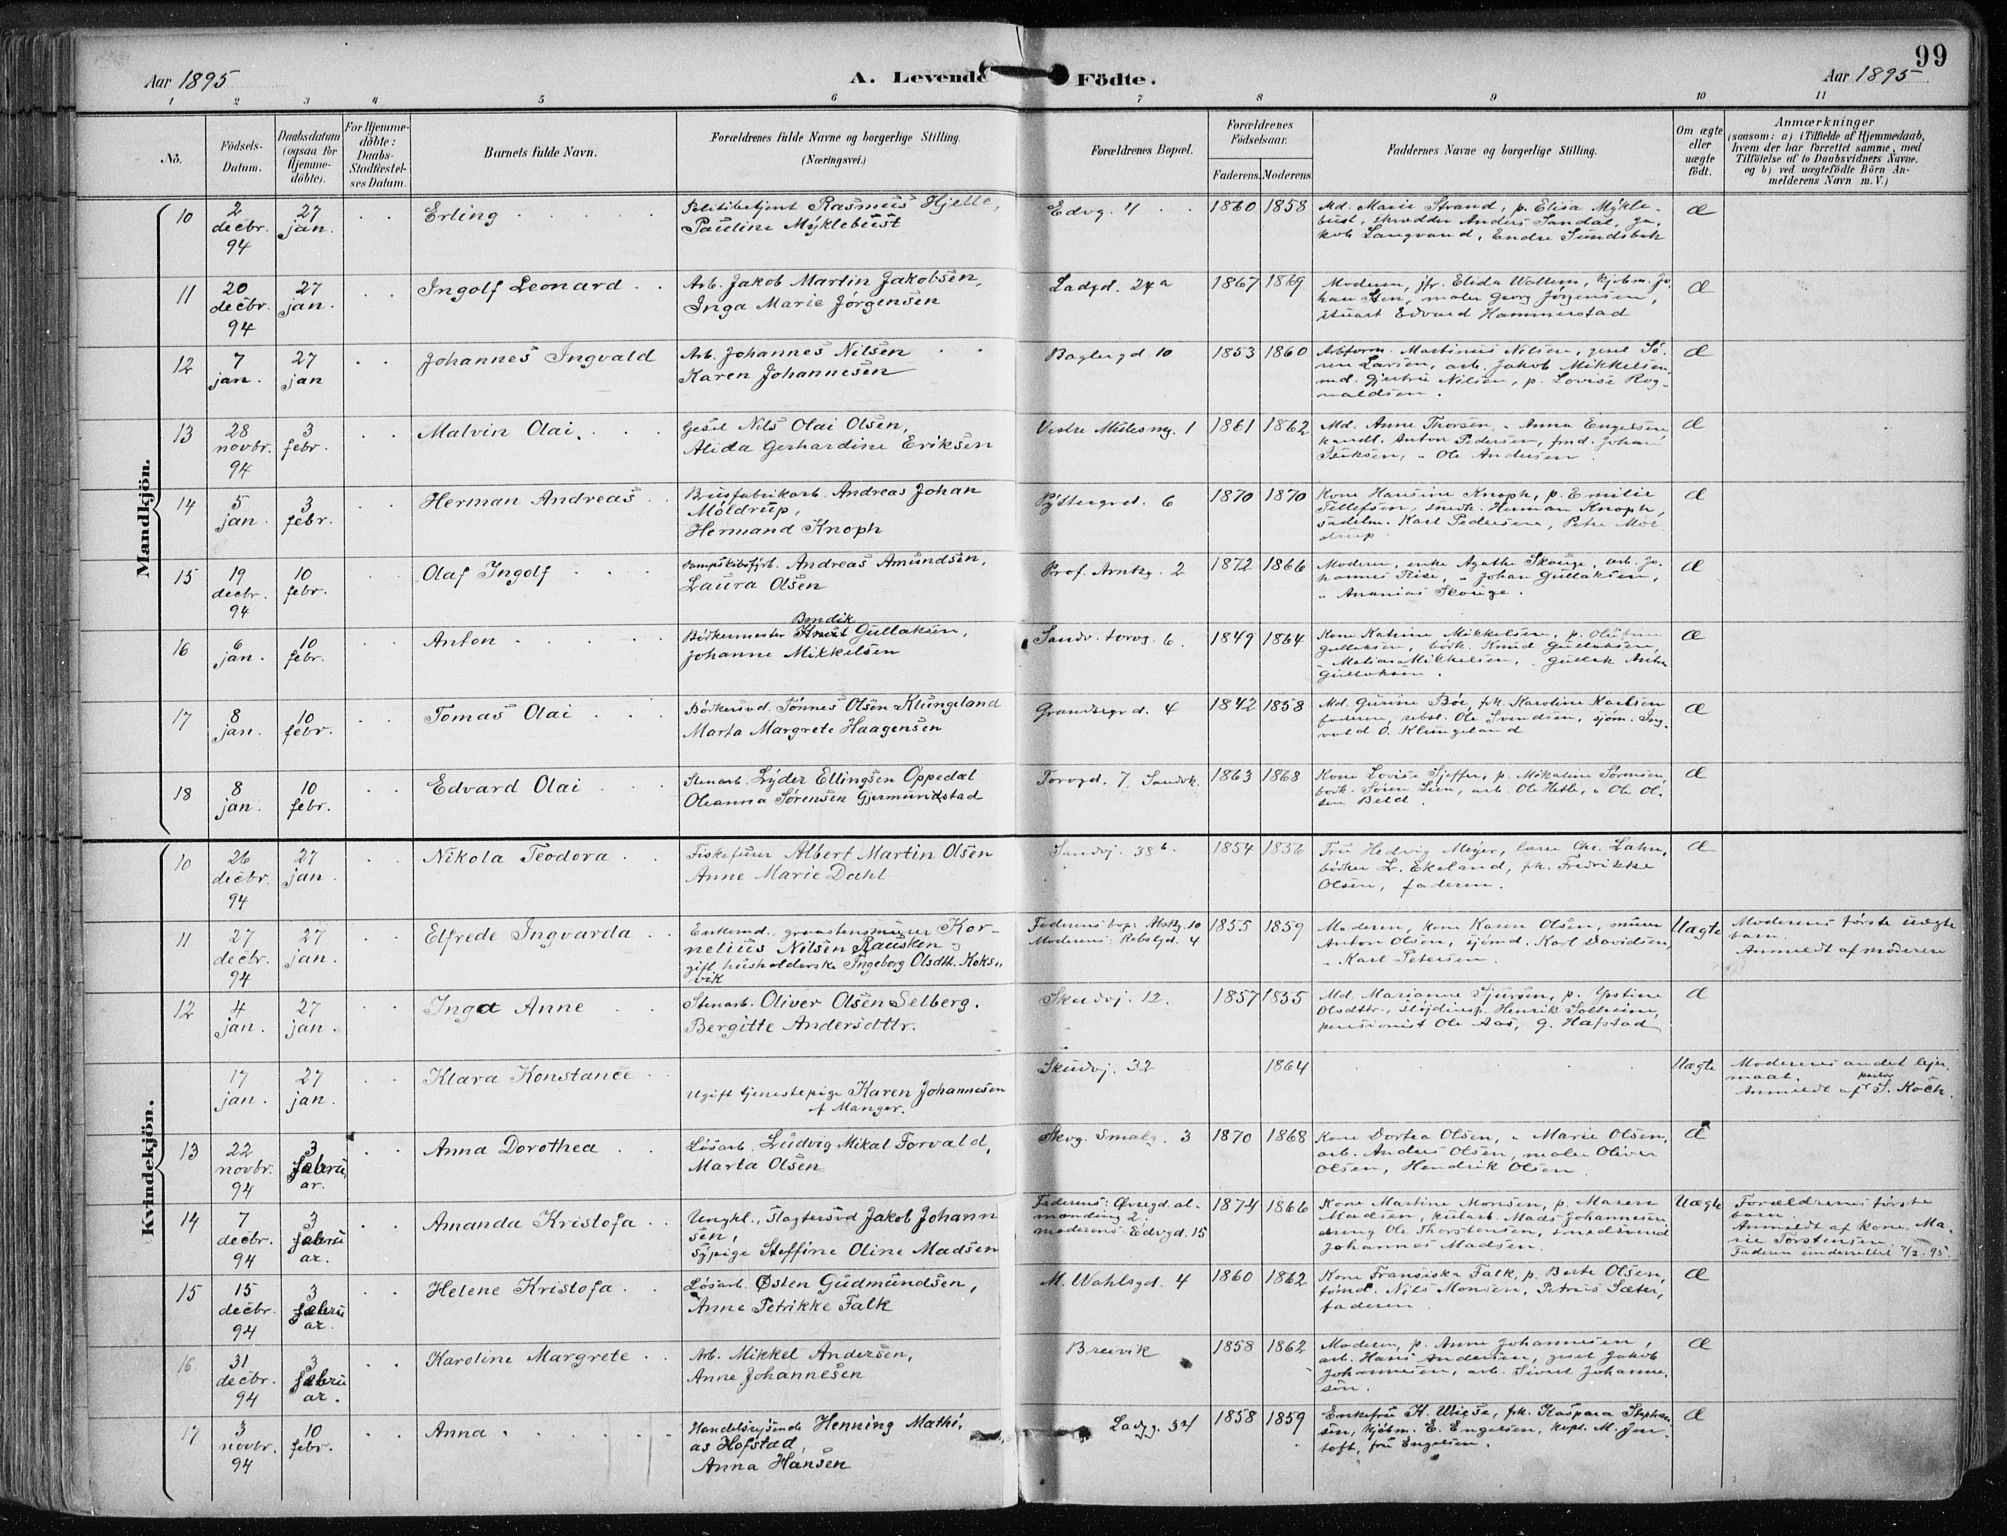 99
Aar 1895
A. Levende Födte.
Aar 1895
1 2 3 4 5 6 7 8 9 10 11
No.
Födsels-Datum.
Daabsdatum (ogsaa for Hjemme-döbte).
For Hjemme-döbte: Daabs-Stadfæstel-ses Datum.
Barnets fulde Navn.
Forældrenes fulde Navne og borgerlige Stilling.
(Næringsvei.)
Forældrenes Bopæl.
Forældrenes Födselsaar.
Faderens. Moderens.
Faddernes Navne og borgerlige Stilling.
Om ægte eller uægte födt.
Anmærkninger
(saasom: a) i Tilfælde af Hjemmedaab,
hvem der har forrettet samme, med
Tilföielse af to Daabsvidners Navne.
og b) ved uægtefödte Börn An-
melderens Navn m. V.)
Mandkjön.
10 2 decbr. 94 27 jan. Erling
Politibetjent Rasmus Hjelle,
Pauline Myklebust
Edvg. 4 1860 1858
Md. Marie Strand, p. Elisa Mykle-
bust, skrædder Anders Sandal, Ja-
kob Langvand, Endre Sundsbak
æ
11 20 decbr. 94 27 jan. Ingolf Leonard
Arb. Jakob Martin Jakobsen,
Inga Marie Jørgensen
Ladgd. 24a 1867 1869
Moderen, jfr. Elida Waltem, kjøbm. Jo-
han Sten, maler Georg Jørgensen,
stuart Edvard Hammerstad
æ
12 7 jan. 27 jan Johannes Ingvald
Arb. Johannes Nilsen
Karen Johannesen
Baglergd 10 1853 1860
Arbform. Martinus Nilsen, gesel Sø-
ren Larsen, arb. Jakob Mikkelsen,
md. Gjertrie Nilsen, p. Lovise Rog-
naldsen.
æ
13 28 novbr. 94 3 febr. Malvin Olai
Gesel Nils Olai Olsen,
Alida Gerhardine Eriksen
Vestre Mulesmg. 1 1861 1862
Md. Anne Thorsen, " Anna Engelsen
handl. Anton Pedersen, fmd. Johan
Isaksen, " Ole Andersen
æ
14 5 jan. 3 febr. Herman Andreas
Brusfabrikarb. Andreas Johan
Moldrup,
Hermand Knoph
Pyttergrd. 6 1870 1870
Kone Hansine Knoph, p. Emilie
Tillefsen, snedk. Herman Knoph,
sadelm. Karl Pedersen, Petra Mol-
drup.
æ
15 19 decbr. 94 10 febr. Olaf Ingolf
Dampskibsfyrb. Andreas Amundsen,
Laura Olsen
Prof. Arntzg. 2 1872 1866
Moderen, enke Agathe Skouge, arb. Jo-
hannes Riise, " Johan Gullaksen,
" Ananias Skouge.
æ
16 6 jan. 10 febr. Anton
Bendik
Bødkermester Gullaksen,
Johanne Mikkelsen
Sandv. torvg. 6 1849 1864
Kone Katrine Mikkelsen, p. Olufine
Gullaksen, bødk. Knud Gullaksen,
" Matias Mikkelsen, " Gullak Anton
Gullaksen
æ
17 8 jan. 10 febr. Tomas Olai
Bødkersvd. Tønnes Olsen Klungeland
Marta Margrete Haagensen
Grandsgrd. 4 1842 1858
Md. Gurine Bøe, frk. Karoline Karlsen
faderen, selvst. Ole Svendsen, sjøm. Ing-
vald O. Klungeland
æ
18 8 jan. 10 febr. Edvard Olai
Stenarb. Lyder Ellingsen Oppedal
Oleanna Sørensen Gjermundstad
Torvgd. 7 Sandvk. 1863 1868
Kone Lovise Sjeffer, p. Mikaline Sørensen,
bødk. Søren Sem, arb. Ole Hetle, " Ole Ol-
sen Beld.
æ
Kvindekjön.
10 26 decbr. 94 27 jan. Nikola Teodora
Fiskefører Albert Martin Olsen
Anne Marie Dahl
Sandvj. 38b. 1854 1856
Fru Hedvig Meyer, lærer Chr. Lahn,
bødker L. Ekeland, frk. Fredrikke
Olsen, faderen.
æ
11 27 decbr. 94 27 jan. Elfrede Ingvarda
Enkemd., graastensmurer Kor-
nelius Nilsen Rausken og
gift husholderske Ingeborg Olsdtt. Koks-
vik
Faderens bop. Alrekg. 10
Moderens: Rebslgd. 4
1855 1859
Moderen, kone Karen Olsen, murer
Anton Olsen, sjømd. Karl Davidsen,
" Karl Petersen.
Uægte
Moderens første uægte
barn.
Anmeldt af moderen
12 4 jan. 27 jan. Inga Anne
Stenarb. Oliver Olsen Selberg.
Bergitte Andersdttr.
Skudvj. 12. 1857 1855
Md. Marianne Sjursen, p. Ystine
Olsdttr., sløjdinsp. Henrik Solheim,
pensionist Ole Aas, G. Hafstad
æ
17 jan. 27 jan. Klara Konstance
Ugift tjenestepige Karen Johannesen
af Manger.
Skudvj. 32 1864
Uægte
Moderens andet leje-
maal.
Anmeldt af pastor S. Koch.
13 22 novbr. 94 3 februar. Anna Dorothea
Løsarb. Ludvig Mikal Forvald,
Marta Olsen
Skvg. Smalg. 3 1870 1868
Kone Dortea Olsen, " Marie Olsen,
arb. Anders Olsen, maler Oliver
Olsen, Hendrik Olsen
æ
14 7 decbr. 94 3 februar. Amanda Kristofa
Ungkl., Slagtersvd Jakob Johann-
sen,
Sypige Steffine Oline Madsen
Faderens: Øvregd. al-
mending 2.
moderens: Edvgd. 15
1874 1866
Kone Martine Monsen, p. Maren
Madsen, kularb. Mads Johannesen
dreng Ole Thorstensen, smedsvend
Johannes Madsen.
Uægte
Forældrenes første
barn
Anmeldt af kone Ma-
rie Torstensen.
Faderen underrettet 7/2. 95.
15 15 decbr. 94 3 februar. Helene Kristofa
Løsarb. Østen Gudmundsen,
Anne Petrikke Falk
M. Wahlsgd. 4 1860 1862
Kone Fransiska Falk, p. Berte Olsen,
tømd. Nils Monsen, Petrus Sæter,
faderen
æ
16 31 decbr. 94 3 februar. Karoline Margrete
Arb. Mikkel Andersen,
Anne Johannesen
Breivik 1858 1862
Moderen, p. Anne Johannesen,
arb. Hans Andersen, gesel Jakob
Johannesen, arb. Sivert Johanne-
sen.
æ
17 3 novbr. 94 10 febr. Anna
Handelsrejsende Henning Mathi-
as Hofstad,
Anna Hansen
Ladgg. 34 1858 1859
Enkefru K. Wiese, frk. Kaspara Stephan-
sen, kjøbm. E. Engelsen, kapt. M. Jen-
toft, fru Engelsen.
æ